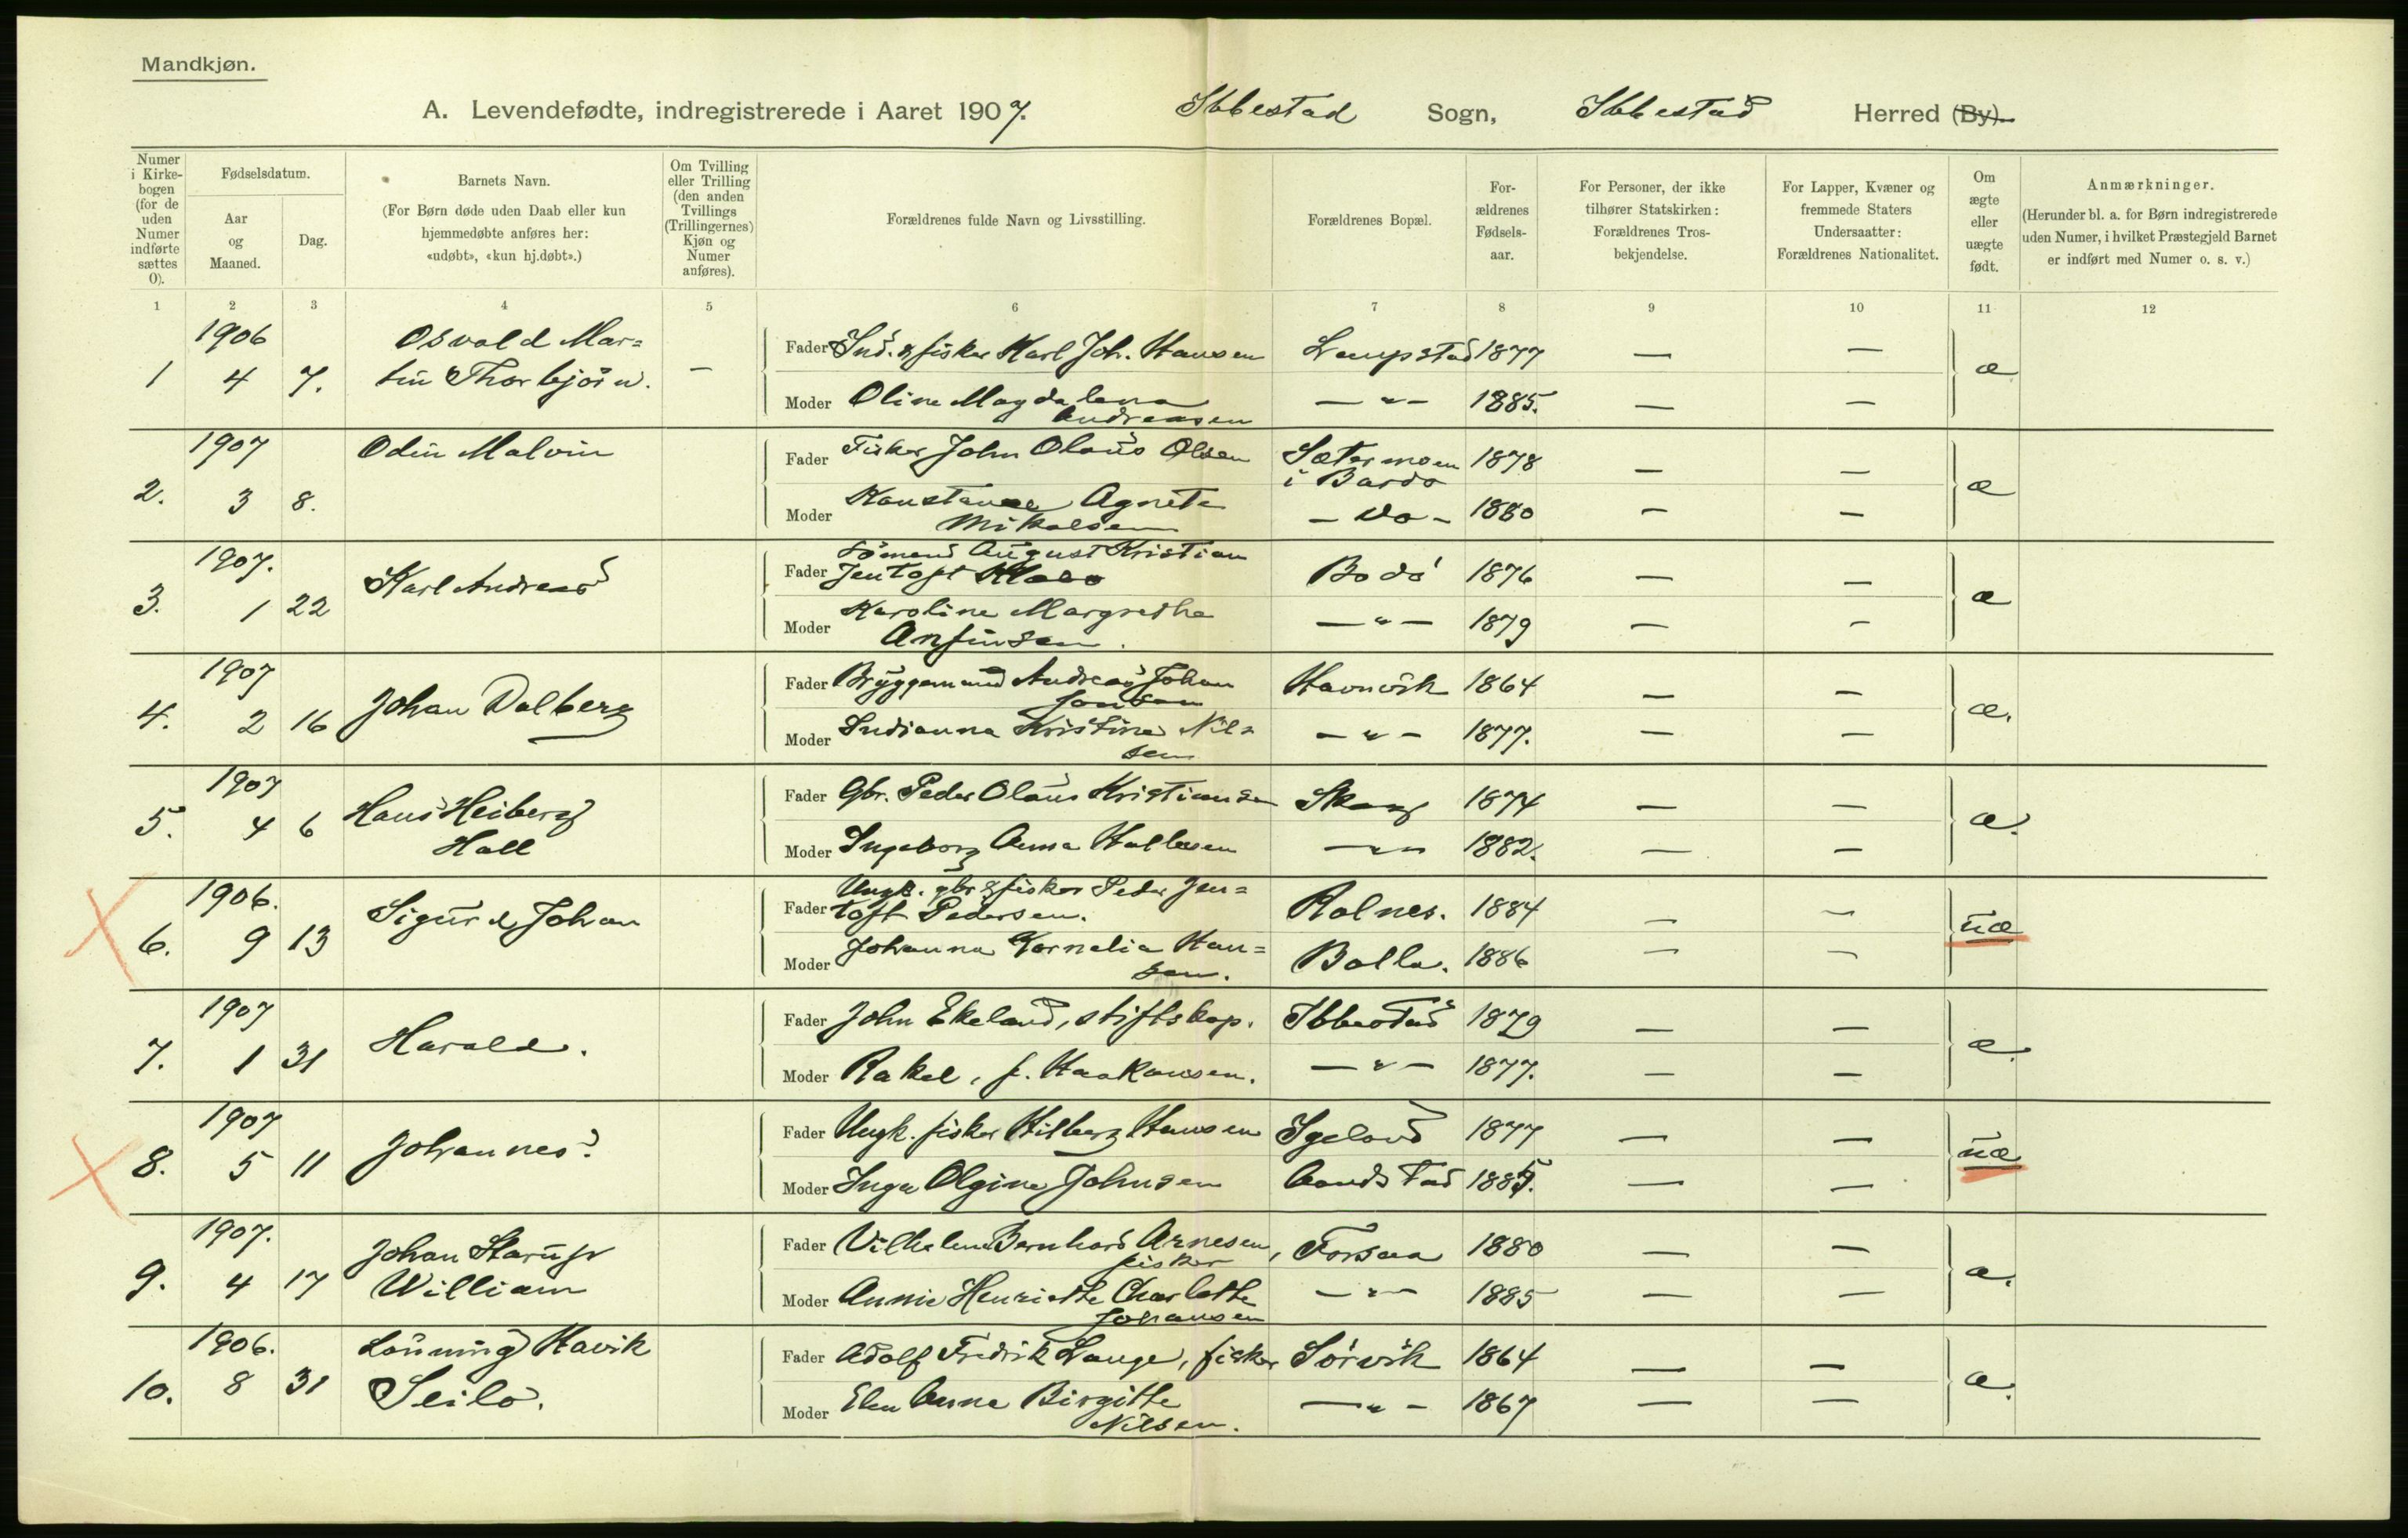 Mandkjøn.
A. Levendefødte, indregistrerede i Aaret 1907. Ibbestad Sogn, Ibbestad Herred (By).
Numer i Kirkebogen (for de uden Numer indførte sættes 0).
Fødselsdatum.
Aar og Maaned.
Dag.
Barnets Navn.
(For Børn døde uden Daab eller kun hjemmedøbte anføres her: «udøbt», «kun hj.døbt».)
Om Tvilling eller Trilling (den anden Tvillings (Trillingernes) Kjøn og Numer anføres).
Forældrenes fulde Navn og Livsstilling.
Forældrenes Bopæl.
Forældrenes Fødselsaar.
For Personer, der ikke tilhører Statskirken: Forældrenes Trosbekjendelse.
For Lapper, Kvæner og fremmede Staters Undersaatter: Forældrenes Nationalitet.
Om ægte eller uægte født.
Anmærkninger.
(Herunder bl. a. for Børn indregistrerede uden Numer, i hvilket Præstegjeld Barnet er indført med Numer o. s. v.)
1 2 3 4 5 6 7 8 9 10 11 12
1 1906 4 7. Osvald Mar=
tin Thorbjörn. —
Fader Ind. & fisker Karl Joh. Hansen 1877 — — æ
Moder Oline Magdalena
Andreasen — " — 1885. — —
2. 1907 3 8. Odin Malvin
Fader Fisker John Olaus Olsen Sætermoen
i Bardo 1878 — — æ
Moder Konstance Agnete
Mikalsen — do — 1880 — —
3. 1907. 1 22 Karl Andreas
Fader Sömand August Kristian
Jentoft Bodö 1876 — — æ
Moder Karoline Margrethe
Anfinsen. — " — 1879 — —
4. 1907 2 16 Johan Dalberg
Fader Bryggemand Andreas Johan
Jonsen Havnvik 1864 — — æ.
Moder Indianna Kristine Nil=
sen — " — 1877. — —
5. 1907 4 6 Hans Heiberg
Hall
Fader Gbr. Peder Olaus Kristiansen Skog 1874 — — æ.
Moder Ingeborg Anna Hallesen — " — 1882. — —
6. 1906. 9 13 Sigurd Johan
Fader Ungk. gbr & fisker Peder Jen=
toft Pedersen. Rolnes. 1884 — — uæ
Moder Johanna Kornelia Han=
sen. Bolla. 1886 — —
7. 1907 1 31 Harald.
Fader John Ekeland, stiftskap. Ibbestad 1879 — — æ.
Moder Rakel, f. Haakonsen. — " — 1877. — —
8. 1907 5 11 Johannes
Fader Ungk. fisker Hilberg Hansen Igeland 1877 — — uæ
Moder Inga Olgine Johnsen Aandstad 1885. — —
9. 1907. 4 17 Johan Starup
William
Fader Vilhelm Bernhard Arnesen,
fisker Forsaa 1880 — — æ.
Moder Annie Henriette Charlotte
Johansen — " — 1885 — —
10. 1906. 8 31 Lönning Havik
Seilo.
Fader Adolf Fredrik Lange, fisker Sörvik 1864 — — æ.
Moder Elen Anna Birgitte
Nilsen. — " — 1867 — —